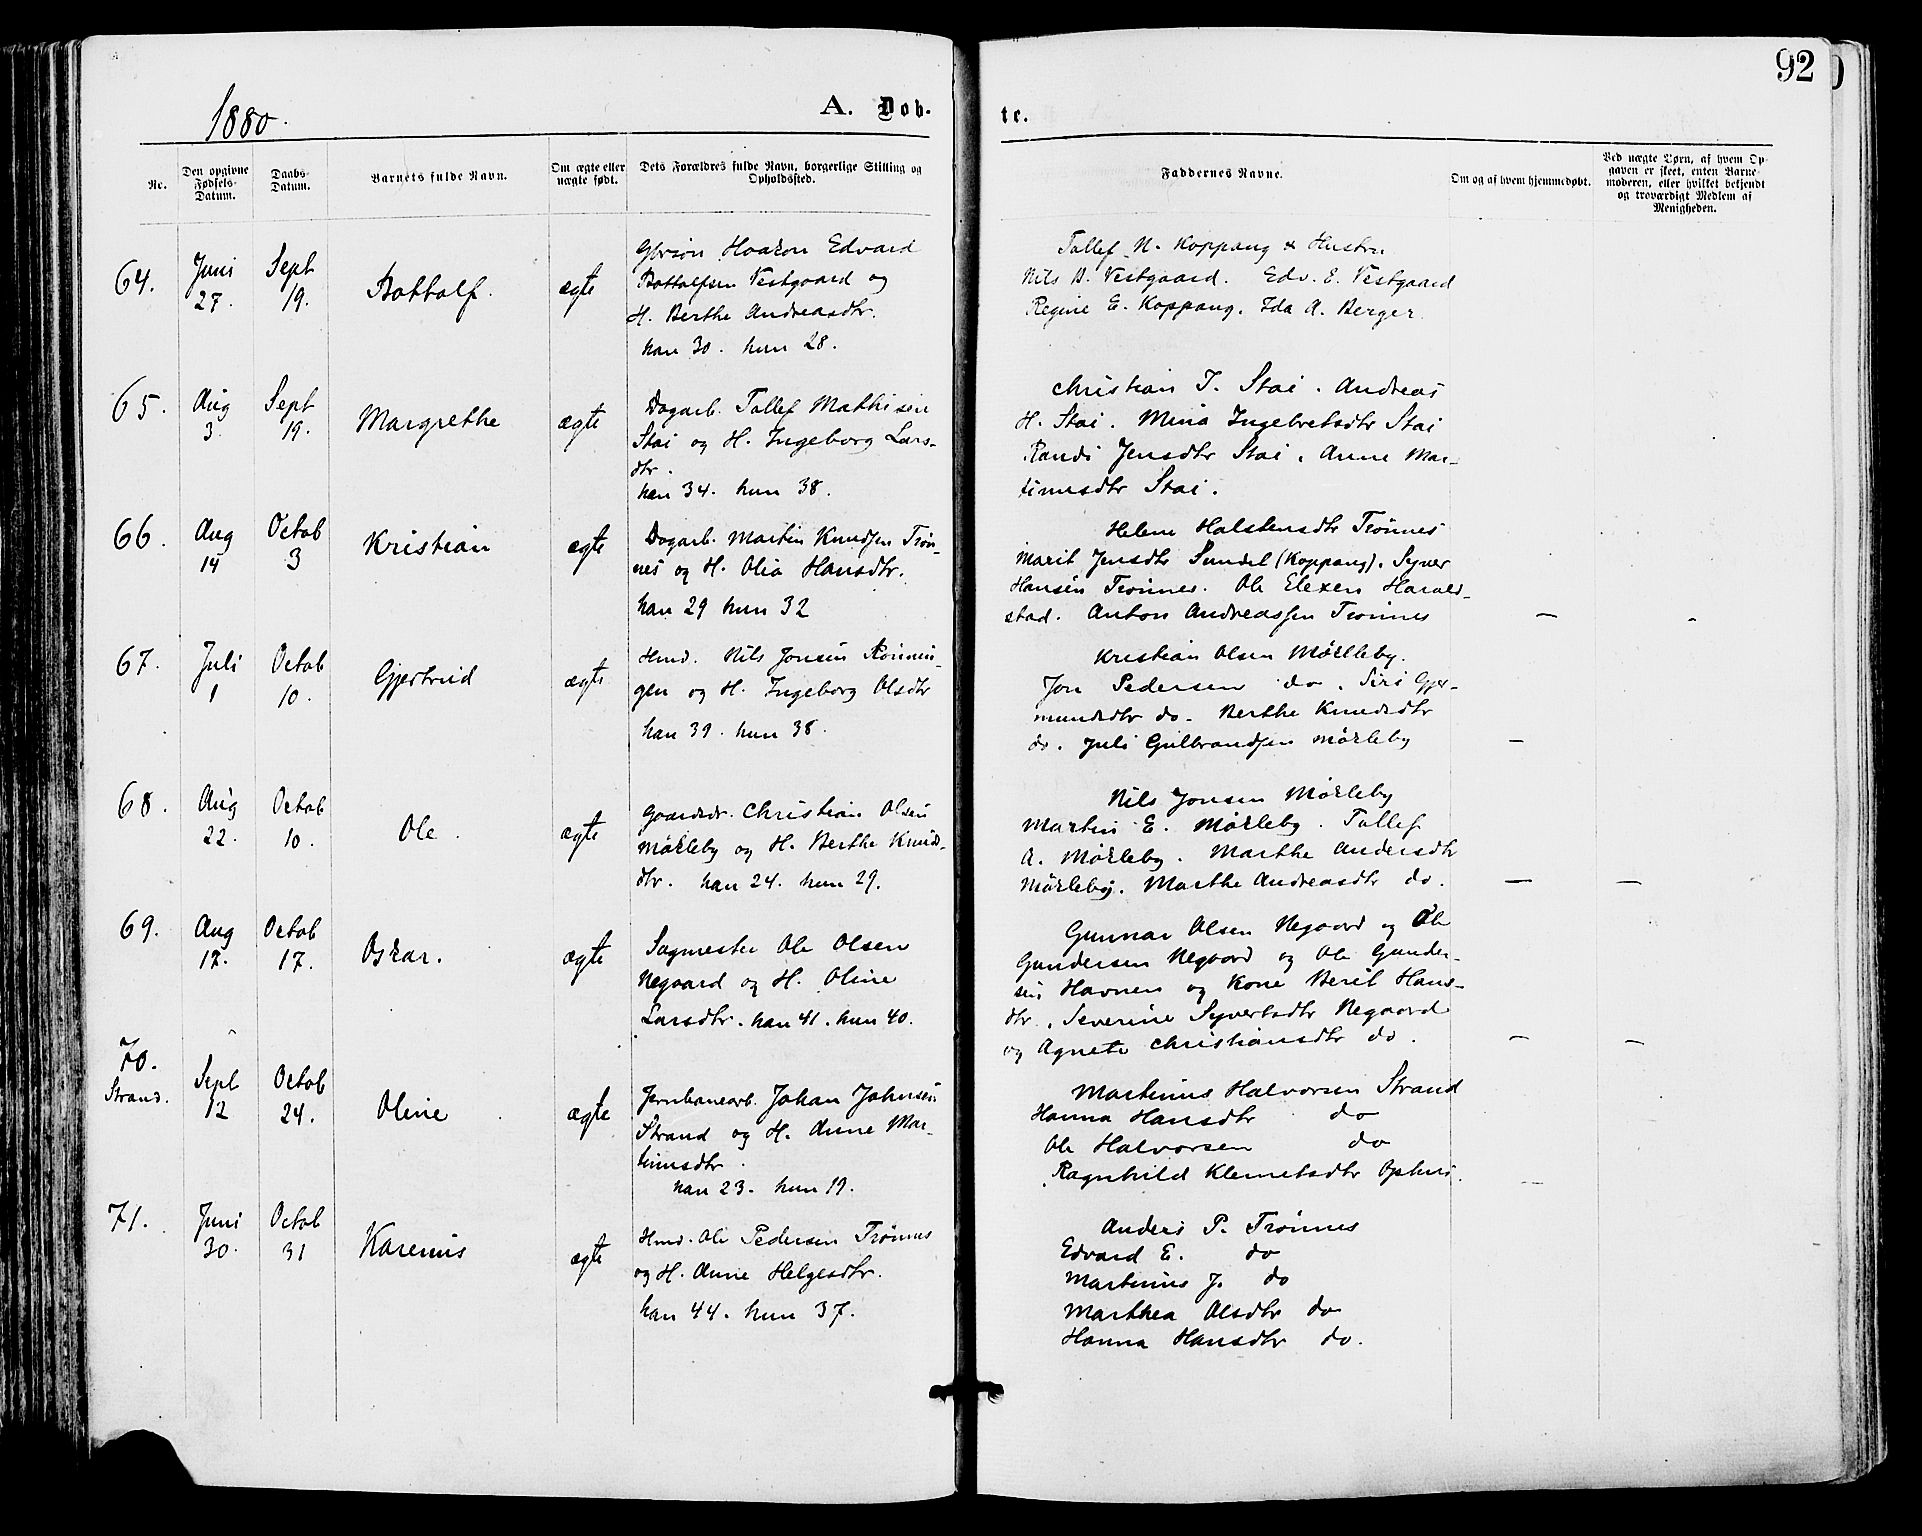 92
1880.
A. Døb-
te.
No.
Den opgivne
Fødsels-
Datum.
Daabs-
Datum.
Barnets fulde Navn.
Om ægte eller
uægte født.
Dets Forældres fulde Navn, borgerlige Stilling og
Opholdssted.
Faddernes Navne.
Om og af hvem hjemmedøbt.
Ved uægte Børn, af hvem Op-
gaven er skeet, enten Barne-
moderen, eller hvilket bekjendt
og troværdigt Medlem af
Menigheden.
64.
Juni
27.
Sept
19.
Bottolf.
ægte
Haakon Edvard
Bottolfsen Vestgaard og
H. Berthe Andreasdtr.
han 30. hun 28.
Tollef N. Koppang & Hustru
Nils B. Vestgaard. Edv. E. Vestgaard
Regine E. Koppang. Ida A. Berger.
65.
Aug
3.
Sept
19.
Margrethe
ægte
Dagarb. Tollef Mathisen
Stai og H. Ingeborg Lars-
dtr.
han 34. hun 38.
Christian J. Stai. Andreas
H. Stai. Mina Ingebretsdtr Stai
Randi Jensdtr Stai. Anne Mar-
tinusdtr Stai.
66.
Aug
14
Octob
3
Kristian
ægte
Dagarb. Martin Knudsen Trøn-
nes og H. Olia Hansdtr.
han 29 hun 32
Helene Halstensdtr Trønnes
Marit Jensdtr Sundet (Koppang). Syver
Hansen Trønnes. Ole Elexen Harald-
stad. Anton Andreassen Trønnes
67.
Juli
1
Octob
10.
Gjertrud
ægte
Hmd. Nils Jonsen Rønnin-
gen og H. Ingeborg Olsdtr
han 39. hun 38.
Kristian Olsen Mørleby.
Jon Pedersen do. Siri Gjer-
mundsdtr do. Berthe Knudsdtr
do. Juli Gulbrandsen Mørleby
68.
Aug
22.
Octob
10.
Ole.
ægte
Gaardbr. Christian Olsen
Mørleby og H. Berthe Knuds-
dtr. han 24. hun 29.
Nils Jonsen Mørleby
Martin E. Mørleby. Tollef
A. Mørleby. Marthe Andersdtr
Mørleby. Marthe Andreasdtr do.
69.
Aug
17.
Octob
17.
Oskar.
ægte
Sagmester Ole Olsen
Negaard og H. Oline
Larsdtr. han 41. hun 40.
Gunnar Olsen Negaard og Ole
Gundersen Negaard og Ole Gunder-
sen Havnen og Kone Berit Hans-
dtr. Severine Syvertsdtr Negaard
og Agnete Christiansdtr do.
70.
Strand.
Sept
12
Octob
24.
Oline
ægte
Jernbanearb. Johan Johnsen
Strand og H. Anne Mar-
tinusdtr.
han 23. hun 19.
Martinus Halvorsen Strand
Hanna Hansdtr do
Ole Halvorsen do
Ragnhild Klemetsdtr Ophus.
71.
Juni
30.
Octob
31
Karenus
ægte
Hmd. Ole Pedersen Trønnes
og H. Anne Helgesdtr.
han 44. hun 37.
Anders P. Trønnes
Edvard E. do
Martinus J. do
Marthea Olsdtr do
Hanna Hansdtr do.